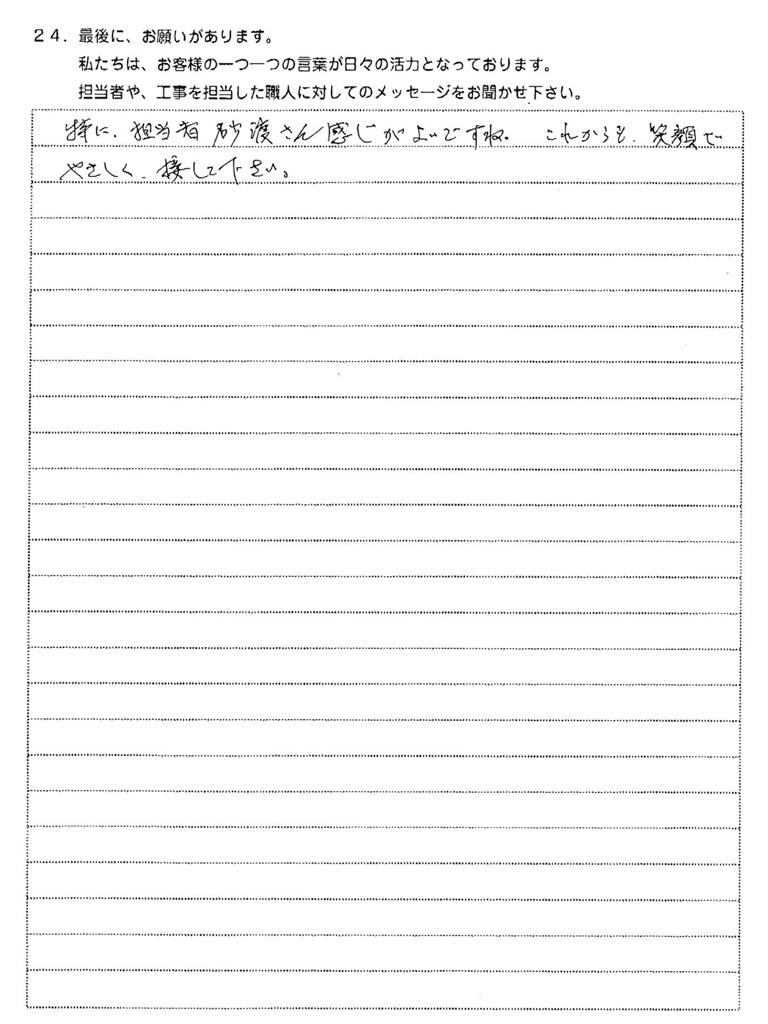 24. 最後に、お願いがあります。
私たちは、お客様の一つ一つの言葉が日々の活力となっております。
担当者や、工事を担当した職人に対してのメッセージをお聞かせ下さい。
特に、担当者 砂渡さん感じがよいですね。 これからも、笑顔で
やさしく、接して下さい。